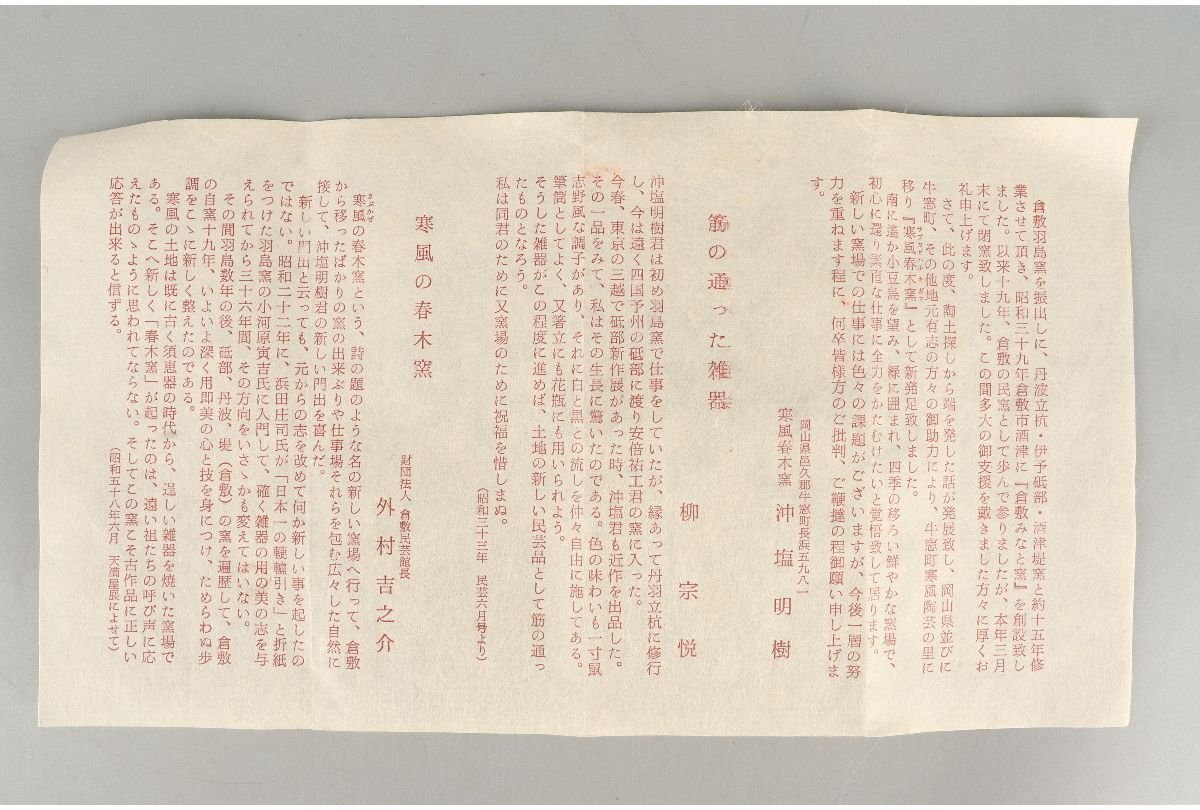 倉敷羽島窯を振出しに、丹波立杭・伊予砥部・酒津堤窯と約十五年修
業させて頂き、昭和三十九年倉敷市酒津に『倉敷みなと窯』を創設致し
ました。以来十九年、倉敷の民窯として歩んで参りましたが、本年三月
末にて閉窯致しました。この間多大の御支援を戴きました方々に厚くお
礼申上げます。
さて、此の度、陶土探しから端を発した話が発展致し、岡山県並びに
牛窓町、その他地元有志の方々の御助力により、牛窓町寒風陶芸の里に
移り『寒風春木窯』として新発足致しました。
南に遙か小豆島を望み、緑に囲まれ、四季の移ろい鮮やかな窯場で、
初心に還り素直な仕事に全力をかたむけたいと覚悟致して居ります。
新しい窯場での仕事には色々の課題がございますが、今後一層の努
力を重ねます程に、何卒皆様方のご批判、ご鞭撻の程御願い申し上げま
す。
岡山県邑久郡牛窓町長浜五九八一
寒風春木窯 沖塩明樹
筋の通った雑器
柳宗悦
沖塩明樹君は初め羽島窯で仕事をしていたが、縁あって丹羽立杭に修行
し、今は遠く四国予州の砥部に渡り安倍祐工君の窯に入った。
今春、東京の三越で砥部新作展があった時、沖塩君も近作を出品した。
その一品をみて、私はその生長に驚いたのである。色の味わいも一寸鼠
志野風な調子があり、それに白と黒との流しを仲々自由に施してある。
筆筒としてよく、又箸立にも花瓶にも用いられよう。
そうした雑器がこの程度に進めば、土地の新しい民芸品として筋の通っ
たものとなろう。
私は同君のために又窯場のために祝福を惜しまぬ。
(昭和三十三年 民芸六月号より)
寒風の春木窯
財団法人 倉敷民芸館長
外村吉之介
寒風の春木窯という、詩の題のような名の新しい窯場へ行って、倉敷
から移ったばかりの窯の出来ぶりや仕事場それらを包む広々した自然に
接して、沖塩明樹君の新しい門出を喜んだ。
新しい門出と云っても、元からの志を改めて何か新しい事を起したの
ではない。昭和二十二年に、浜田庄司氏が「日本一の轆轤引き」と折紙
をつけた羽島窯の小河原寅吉氏に入門して、確く雑器の用の美の志を与
えられてから三十六年間、その方向をいさゝかも変えてはいない。
その間羽島数年の後、砥部、丹波、堤(倉敷)の窯を遍歴して、倉敷
の自窯十九年、いよいよ深く用即美の心と技を身につけ、ためらわぬ歩
調をこゝに新しく整えたのである。
寒風の土地は既に古く須恵器の時代から、逞しい雑器を焼いた窯場で
ある。そこへ新しく「春木窯」が起ったのは、遠い祖たちの呼び声に応
えたものゝように思われてならない。そしてこの窯こそ古作品に正しい
応答が出来ると信ずる。
(昭和五十八年六月 天満屋展によせて)